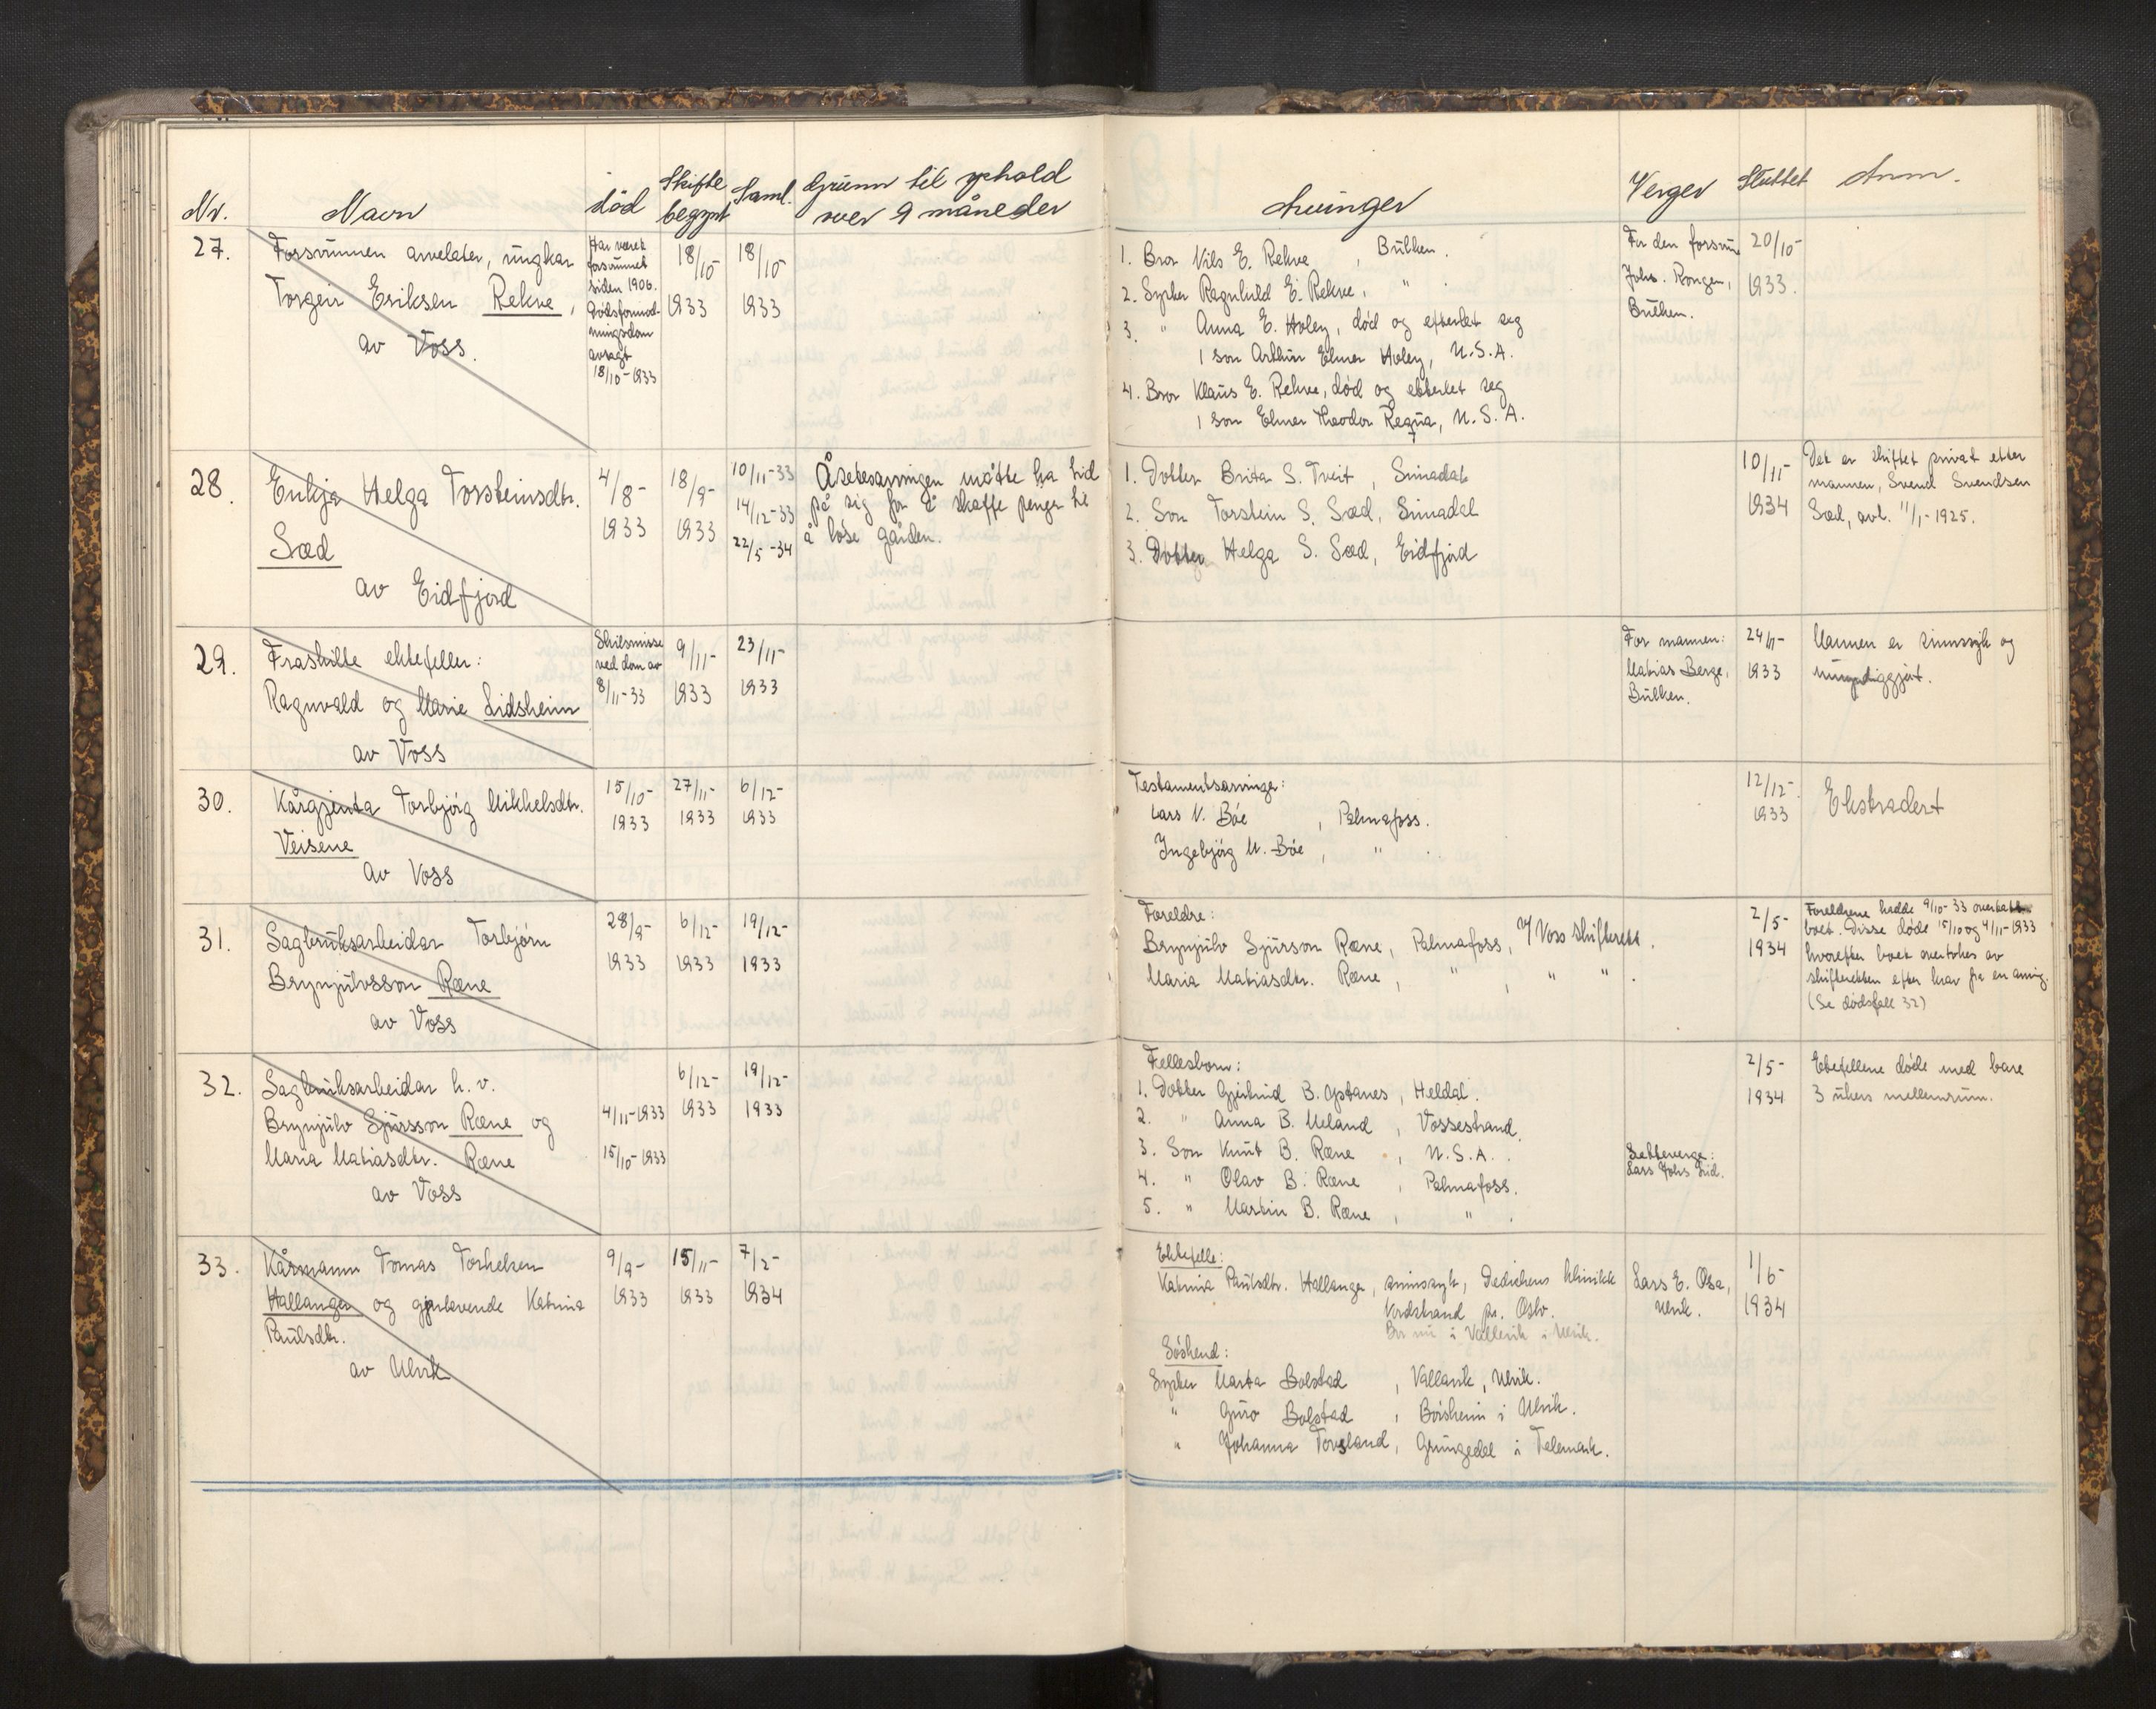 Nr.
Navn
död
Skifte
begynt
Saml.
Grunn til ophold
over 9 måneder
Arvinger
Verger
Sluttet
Anm.
27.
Forsvunnen arvelater, ungkar
Torgeir Eriksen Rekve,
av Voss.
Har været
forsvunnet
siden 1906.
Dödsformod-
ningsdom
avsagt
18/10-1933
18/10-
1933
18/10-
1933
1. Bror Nils E. Rekve, Bulken.
2. Syster Ragnhild E. Rekve, "
3. " Anna E. Holey, död og efterlet seg
1 son Arthur Elmer Holey, U.S.A.
4. Bror Klaus E. Rekve, död og etterlet seg
1 son Elmer Theodor Regua, U.S.A.
For den forsvu
Johs. Rongen,
Bulken.
20/10-
1933.
28.
Enkja Helga Torsteinsdtr.
Sæd
av Eidfjord
4/8-
1933
18/9-
1933
10/11-33
14/12-33
22/5-34
Åsetesarvingen måtte ha tid
på sig for å skaffe penger til
å löse gården.
1. Dotter Brita S. Tveit, Simadal
2. Son Torstein S. Sæd, Simadal
3. Dotter Helga S. Sæd, Eidfjord
10/11-
1934
Det er skiftet privat etter
mannen, Svend Svendsen
Sæd, avl. 11/1-1925.
29.
Fraskilte ektefeller:
Ragnvald og Marie Lidsheim
av Voss
Skilsmisse
ved dom av
8/11-33
9/11-
1933
23/11-
1933
For mannen:
Matias Berge,
Bulken.
24/11-
1933
Mannen er sinnssyk og
umyndiggjort.
30.
Kårgjenta Torbjörg Mikkelsdtr.
Veisene
av Voss
15/10-
1933
27/11-
1933
6/12-
1933
Testamentsarvinge:
Lars N. Böe, Palmafoss.
Ingebjörg M. Böe, " .
12/12-
1933
Ekstradert
31.
Sagbruksarbeidar Torbjörn
Brynjulvsson Ræne
av Voss
28/9-
1933
6/12-
1933
19/12-
1933
Foreldre:
Brynjulv Sjursson Ræne, Palmafoss, v/ Voss skifterett.
Maria Matiasdtr. Ræne, " , " " .
2/5-
1934
Foreldrene hadde 9/10-33 overtatt
boet. Disse döde 15/10 og 4/11-1933
hvorefter boet overtokes av
skifteretten efter krav fra en arving.
(Se dödsfall 32)
32.
Sagbruksarbeidar h. v.
Brynjulv Sjursson Ræne og
Maria Matiasdtr. Ræne
av Voss
4/11-1933
15/10-1933
6/12-
1933
19/12-
1933
Fellesborn:
1. Dotter Gjertrud B. Opstanes, Heldal.
2. " Anna B. Meland, Vossestrand.
3. Son Knut B. Ræne, U.S.A.
4. " Olav B. Ræne, Palmafoss.
5. " Martin B. Ræne, " .
Setteverge:
Lars Johs Lid.
2/5-
1934
Ektefellene döde med bare
3 ukers mellemrum.
33.
Kårmann Tomas Torkelsen
Hallanger og gjenlevende Katrina
Paulsdtr.
av Ulvik
9/9-
1933
15/11-
1933
7/2-
1934
Ektefelle:
Katrina Paulsdtr. Hallanger, sinnssyk, Dedichens klinikk
Nordstrand pr. Oslo.
Bor nu i Vallavik i Ulvik.
Söskend:
Syster Marta Bolstad, Vallavik, Ulvik.
" Guro Bolstad, Börsheim i Ulvik.
" Johanna Torsland, Grungedal i Telemark.
Lars E. Osa,
Ulvik.
1/6-
1934